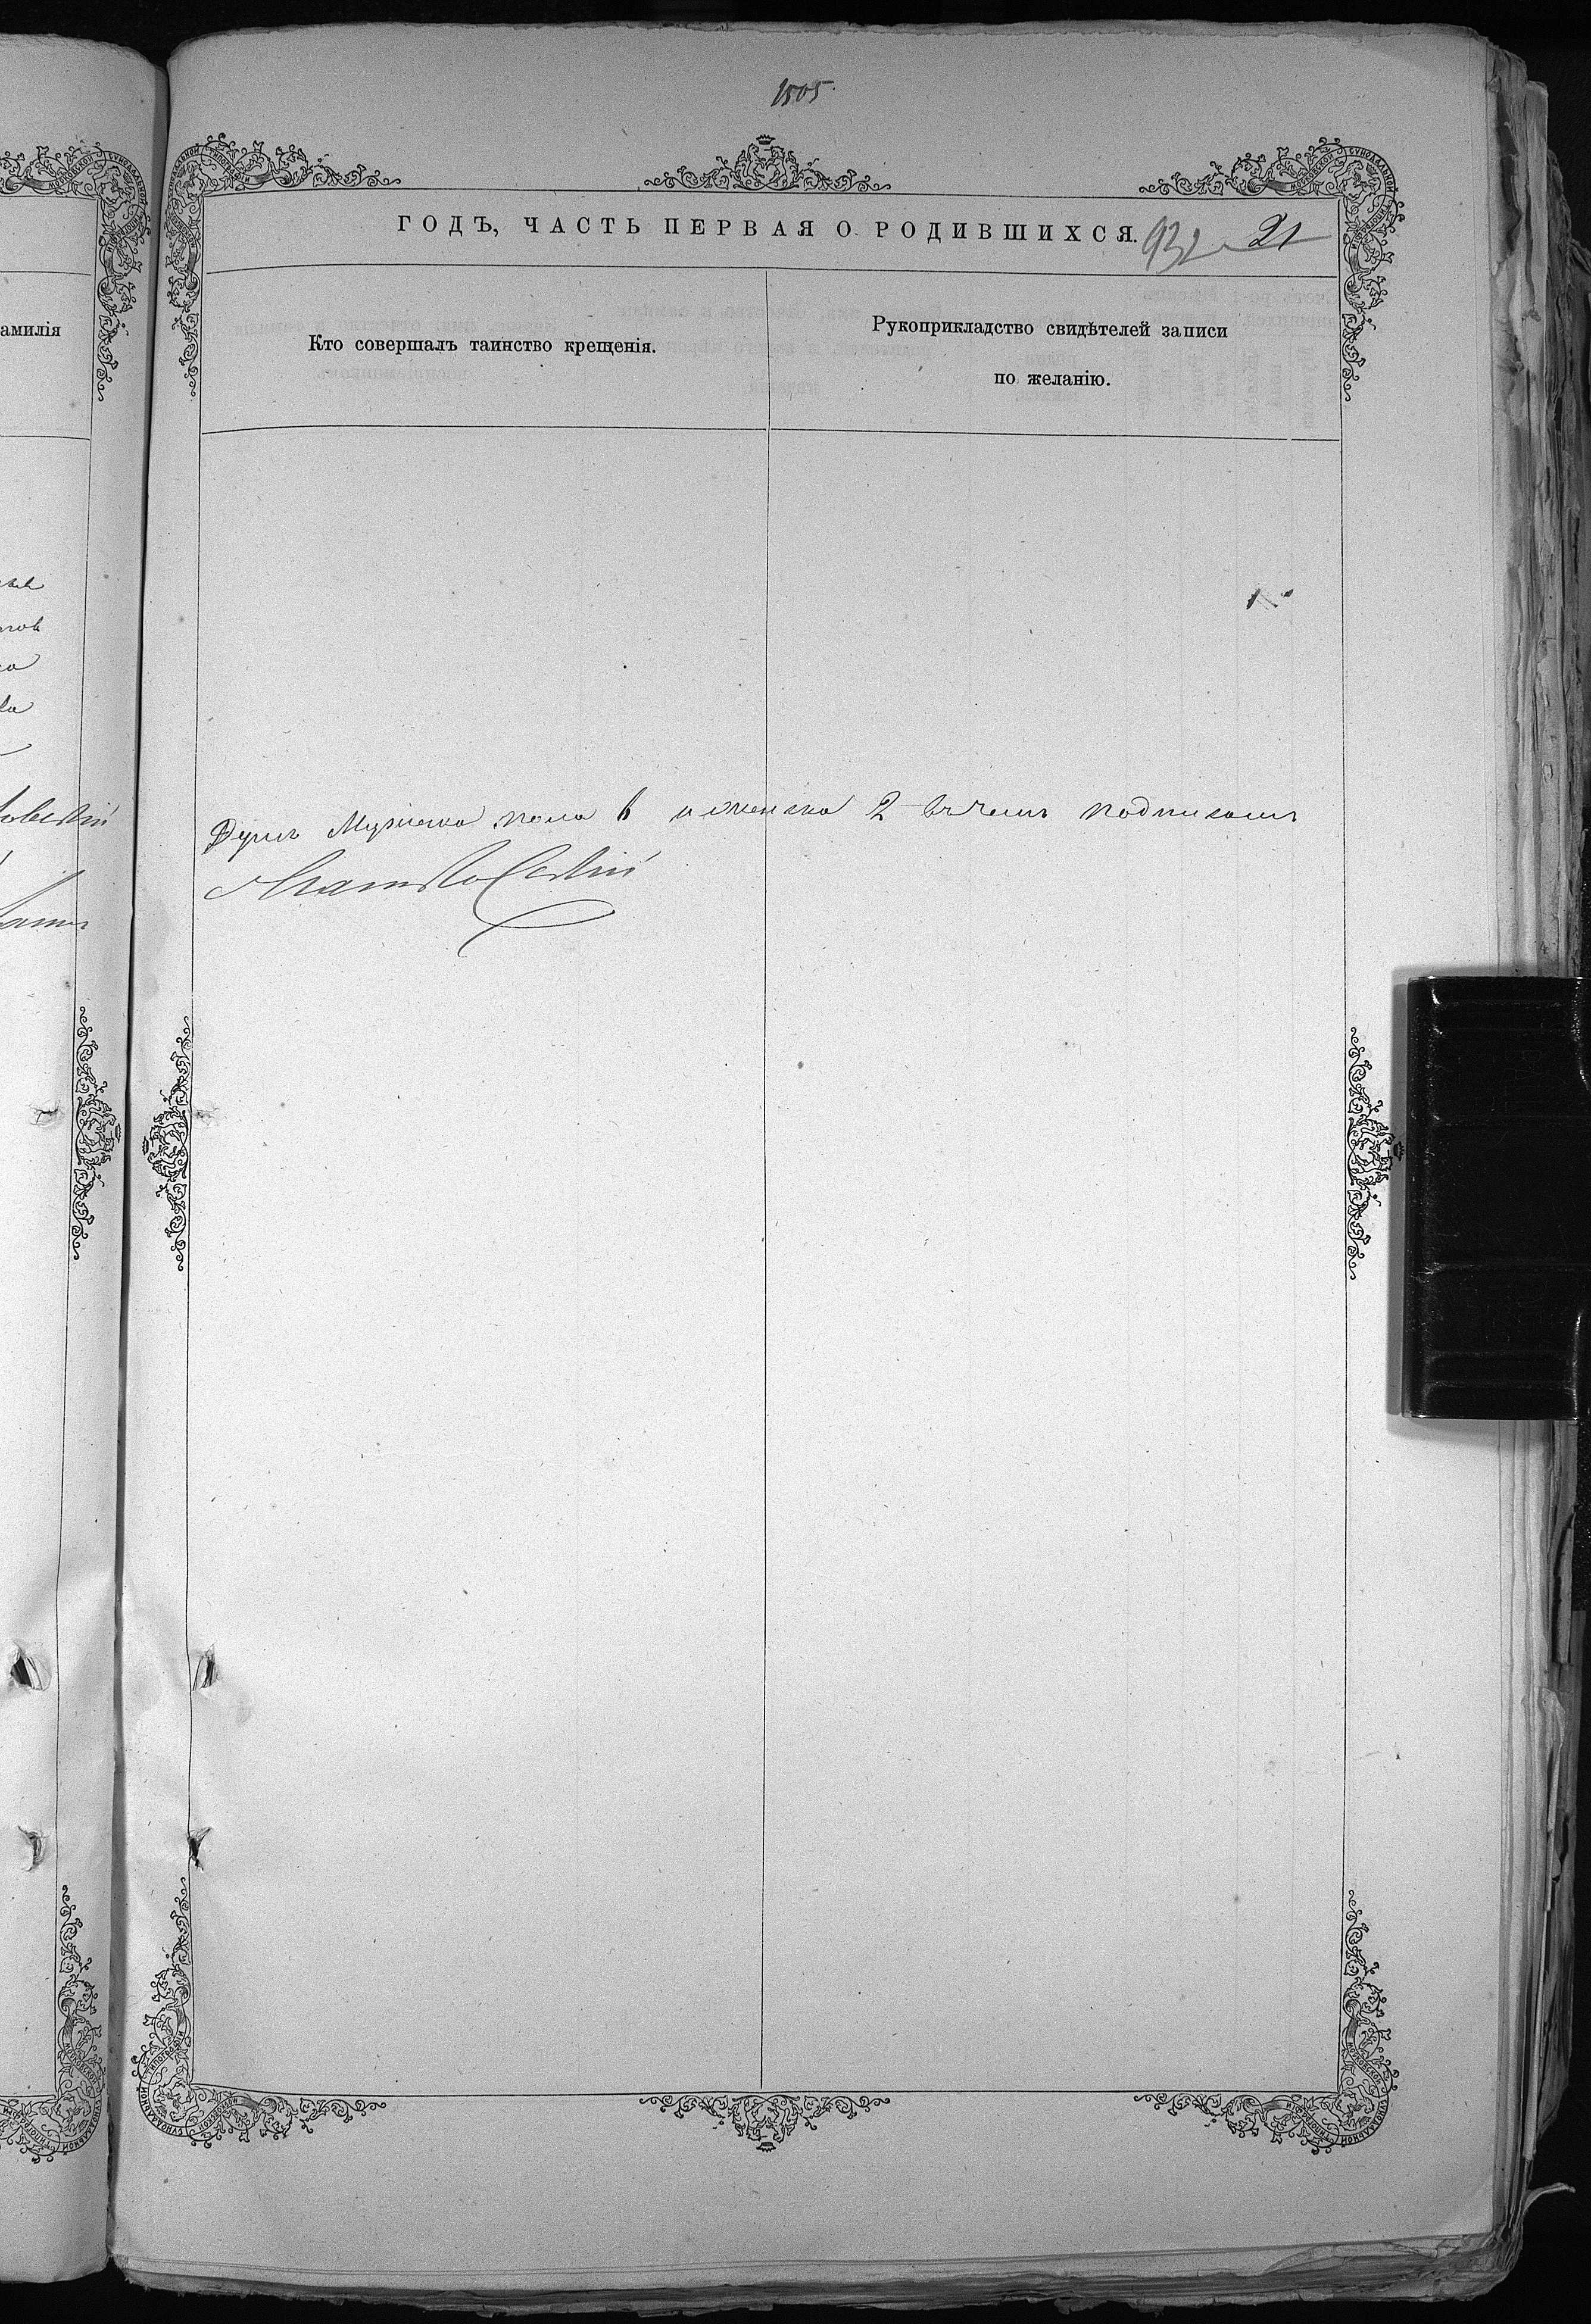 1505
ГОДЪ, ЧАСТЬ ПЕРВАЯ О РОДИВШИХСЯ.
932 21
амилія
Кто совершалъ таинство крещенія.
Рукоприкладство свидѣтелей записи
по желанію.
Душъ Мужеска пола 6 и женска 2 въ чемъ подписомъ